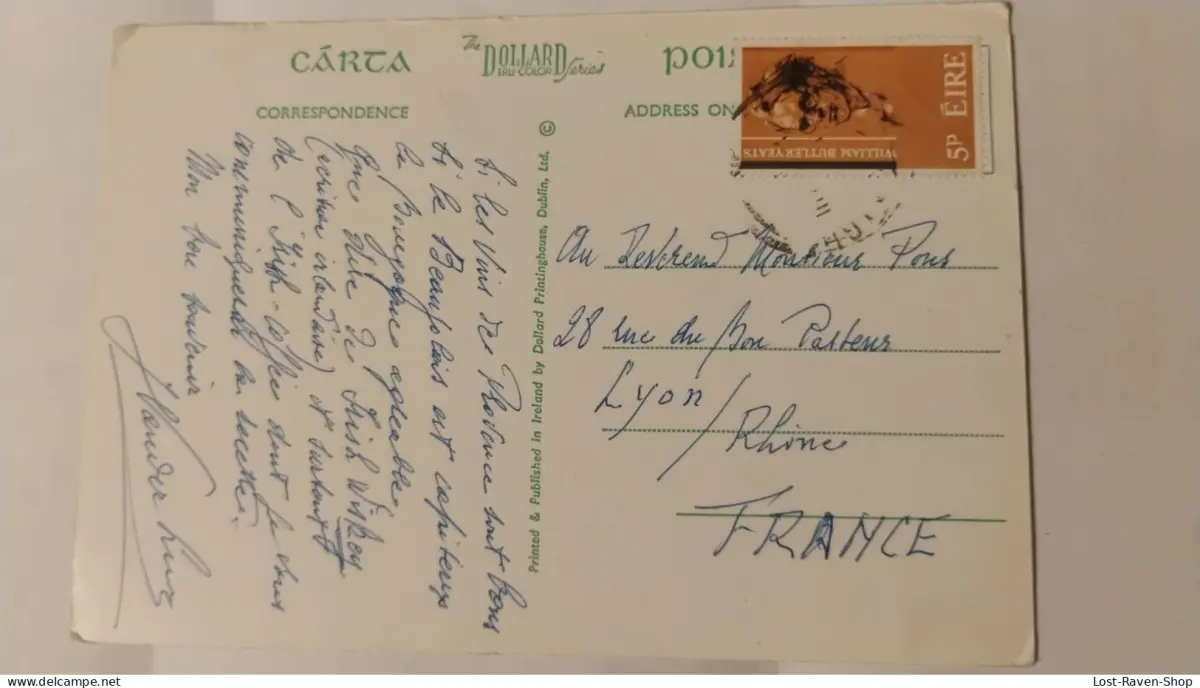 CÁRTA
The DOLLARD TRU-COLOR Series
POI
CORRESPONDENCE
ADDRESS ON
WILLIAM BUTLER YEATS
5P ÉIRE
Si les vins de Provence sont bons
Si le Beaujolais est capiteux
le Bourgogne agréable,
Que dire de Irish Wiskey
(écriture irlandaise) et surtout
de l'Irish-coffee dont je vous
communiquerai la recette.
Mon bon souvenir
Printed & Published in Ireland by Dollard Printinghouse, Dublin, Ltd. ©
Au Révérend Monsieur Pons
28 rue du Bon Pasteur
Lyon / Rhône
FRANCE
Lost-Raven-Shop